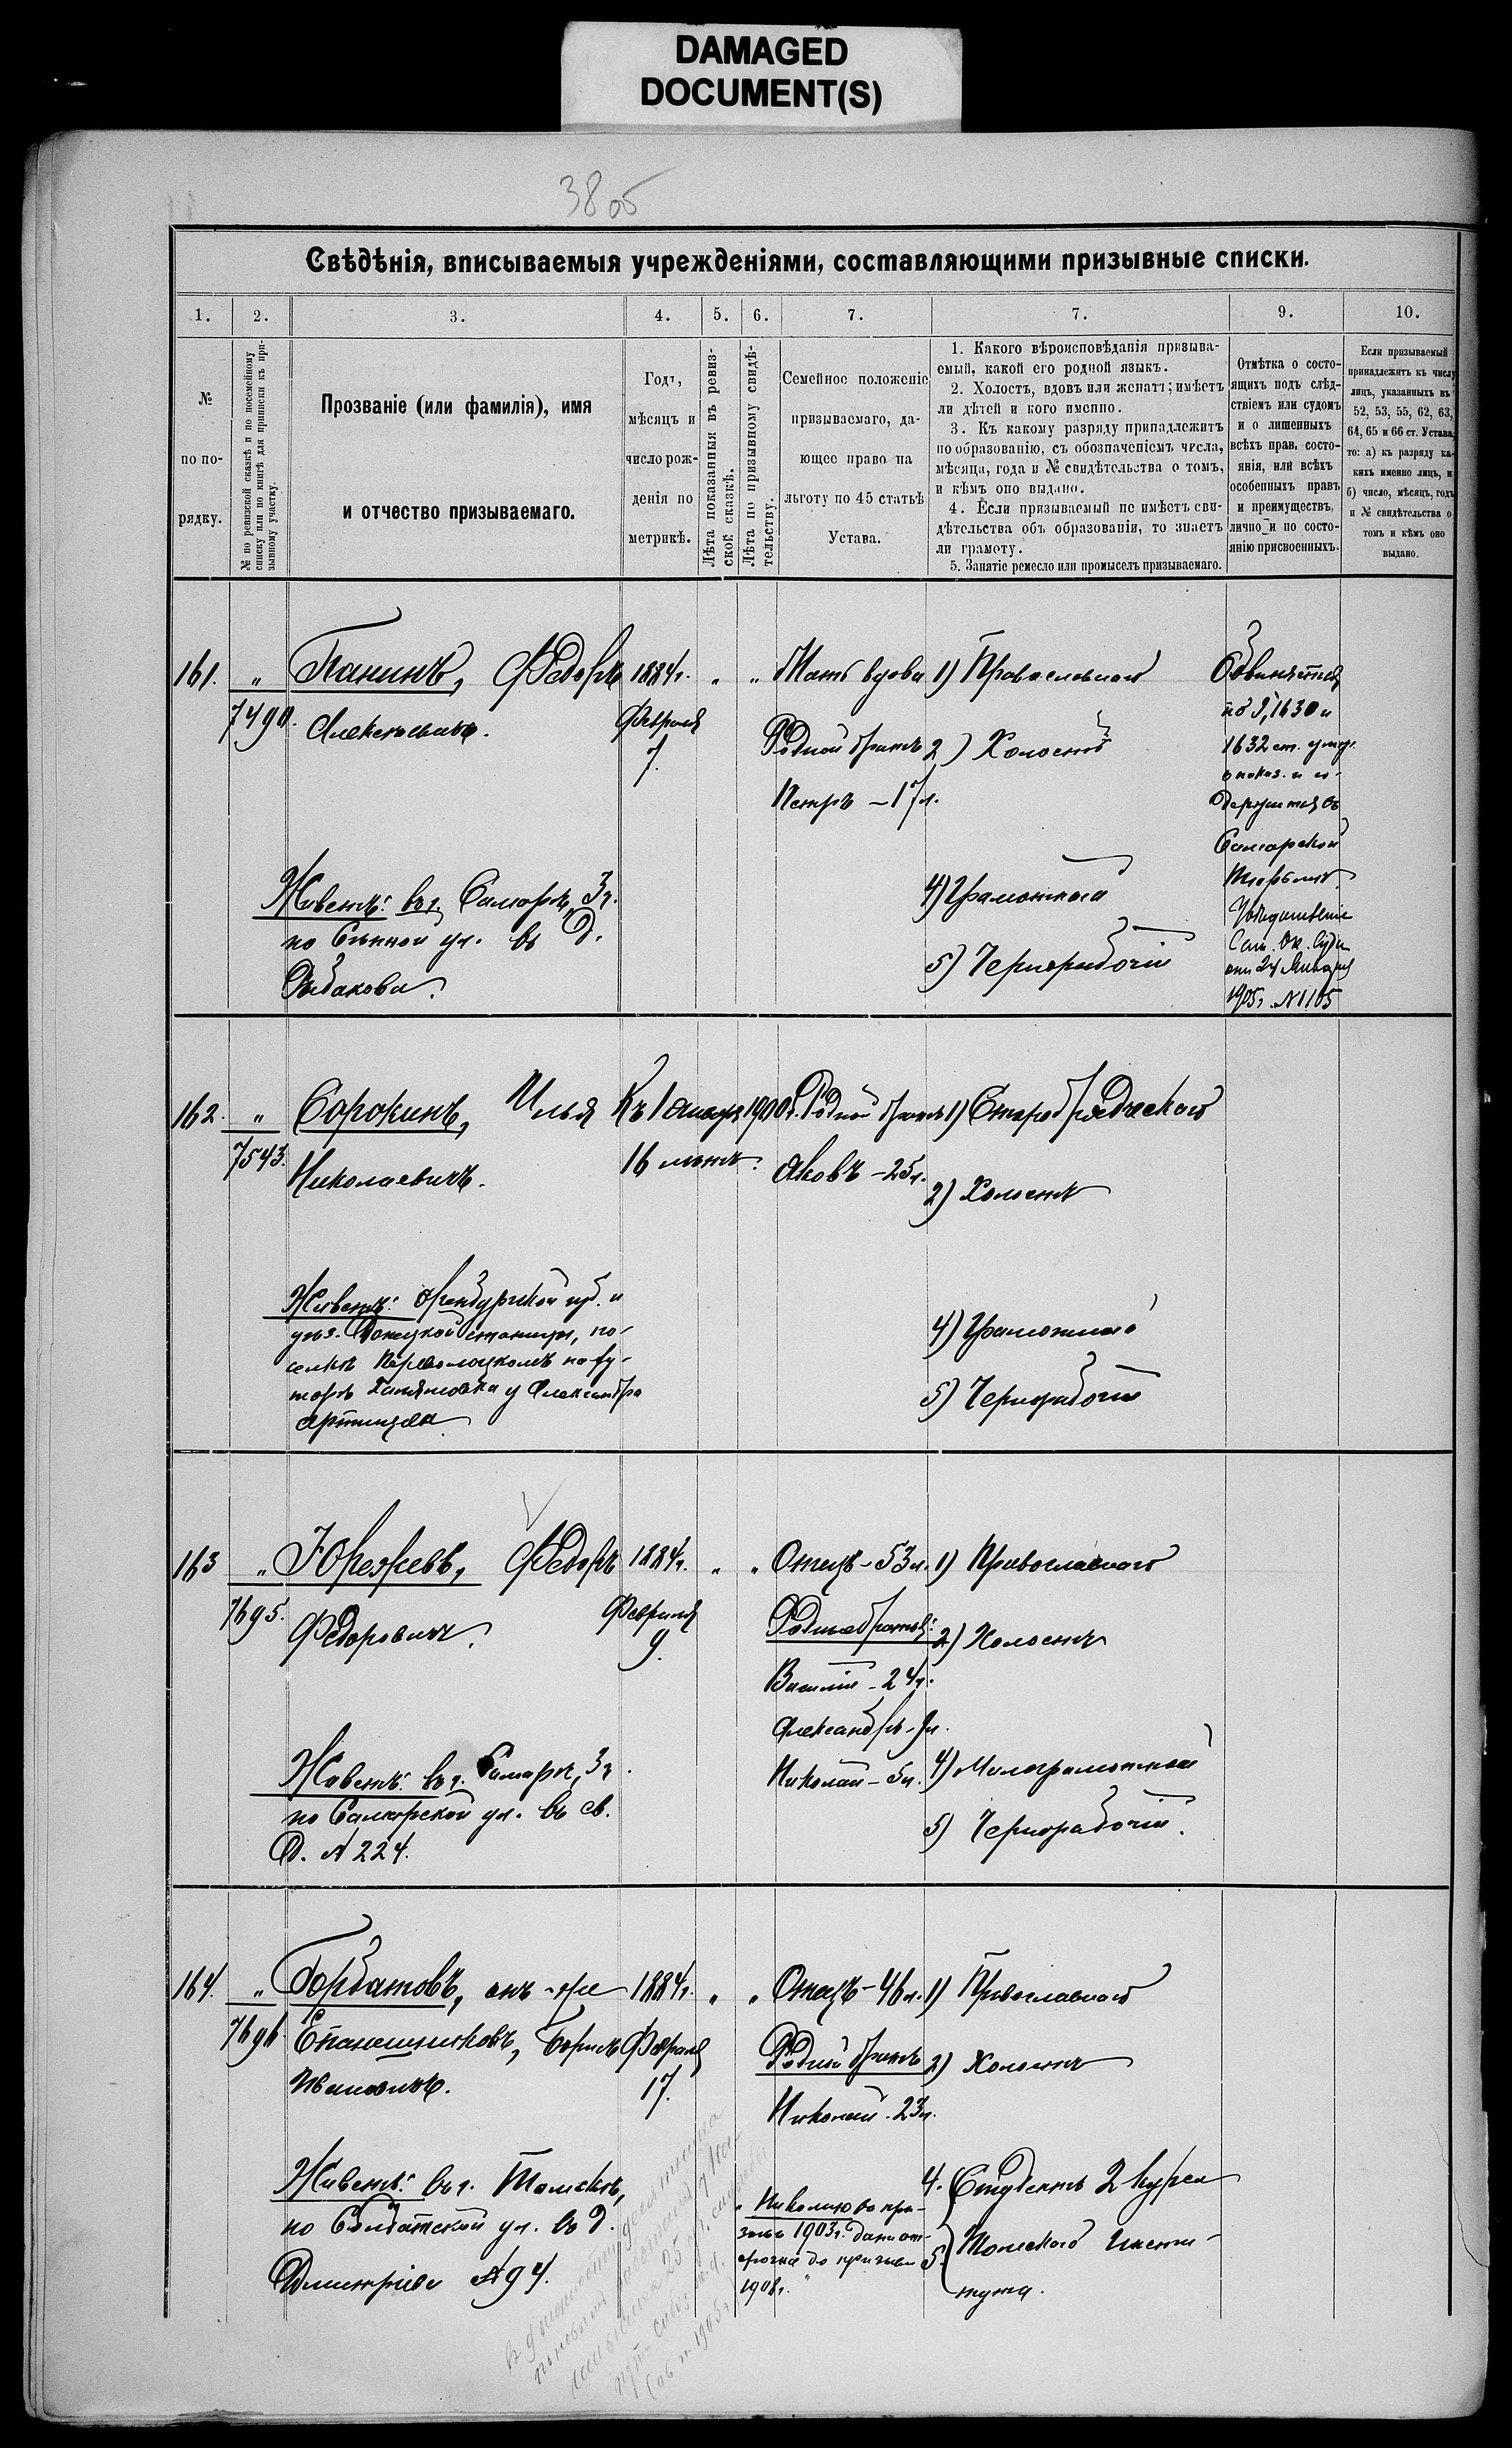 DAMAGED
DOCUMENT(S)
38 об
Свѣдѣнія, вписываемыя учрежденіями, составляющими призывные списки.
1.
2.
3.
4.
5.
6.
7.
7.
9.
10.
№
по по-
рядку.
№ по ревизской сказкѣ и по посемейному
списку или по книгѣ для приписки къ при-
зывному участку.
Прозваніе (или фамилія), имя
и отчество призываемаго.
Годъ,
мѣсяцъ и
число рож-
денія по
метрикѣ.
Лѣта показанныя въ ревиз-
ской сказкѣ.
Лѣта по призывному свидѣ-
тельству.
Семейное положеніе
призываемаго, да-
ющее право на
льготу по 45 статьѣ
Устава.
1. Какого вѣроисповѣданія призыва-
емый, какой его родной языкъ.
2. Холостъ, вдовъ или женатъ; имѣетъ
ли дѣтей и кого именно.
3. Къ какому разряду принадлежитъ
по образованію, съ обозначеніемъ числа,
мѣсяца, года и № свидѣтельства о томъ,
и кѣмъ оно выдано.
4. Если призываемый не имѣетъ сви-
дѣтельства объ образованіи, то знаетъ
ли грамоту.
5. Занятіе ремесло или промыселъ призываемаго.
Отмѣтка о состо-
ящихъ подъ слѣд-
ствіемъ или судомъ
и о лишенныхъ
всѣхъ прав, состо-
янія, или всѣхъ
особенныхъ правъ
и преимуществъ,
лично и по состо-
янію присвоенныхъ.
Если призываемый
принадлежитъ къ числу
лицъ, указанныхъ въ
52, 53, 55, 62, 63,
64, 65 и 66 ст. Устава,
то: а) къ разряду ка-
кихъ именно лицъ, и
б) число, мѣсяцъ, годъ
и № свидѣтельства о
томъ и кѣмъ оно
выдано.
161. " 7490.
Панинъ, Ѳедоръ
Алексѣевичъ.
Живетъ: въ г. Самарѣ, 3 ч.
по Сѣнной ул. въ д.
Рыбакова.
1884 г.
Февраля
7.
" "
Мать вдова
Родной братъ
Петръ – 17 л.
1) Православнаго
2) Холостъ
4) Грамотный
5) Чернорабочій
Обвиняется
по 9, 1630 и
1632 ст. улож.
о наказ. и со-
держится въ
Самарской
тюрьмѣ.
Увѣдомленіе
Сам. Ок. Суда
отъ 24 Января
1905 г. № 1105
162. " 7543.
Сорокинъ, Илья
Николаевичъ.
Живетъ: Оренбургской губ. и
уѣз. Донецкой станицы, по-
селкѣ Переволоцкомъ на ху-
торѣ у Александра
Къ 1 Января 1900 г.
16 лѣтъ.
Родной братъ
Яковъ – 25 л.
1) Старообрядческаго
2) Холостъ
4) Грамотный
5) Чернорабочій
163 " 7695.
Юрежевъ, Ѳедоръ
Ѳедоровичъ.
Живетъ: въ г. Самарѣ, 3 ч.
по Самарской ул. въ св.
д. № 224.
1884 г.
Февраля
9.
" "
Отецъ – 53 л.
Родные братья:
Василій – 24 г.
Александръ – 9 л.
Николай – 5 л.
1) Православнаго
2) Холостъ
4) Малограмотный
5) Чернорабочій.
164. " 7696
Горбатовъ, онъ-же
Епанешниковъ, Борисъ
Ивановичъ.
Живетъ: въ г. Томскѣ,
по Солдатской ул. въ д.
Дмитріева № 94.
1884 г.
Февраля
17.
" "
Отецъ – 46 л.
Родной братъ
Николай. 23 л.
"Николаю во при-
зывъ 1903 г. дана от-
срочка до призыва
1908 г."
1) Православнаго
2) Холостъ
4. Студентъ 2 курса
5. Томскаго Инсти-
тута.